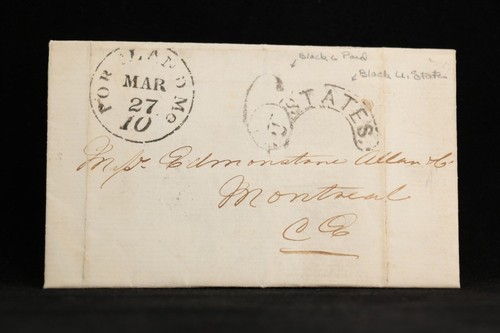 Black 6 Paid
Black U. States
PORTLAND Me
MAR
27
10
STATES
Mssrs. Edmonstone Allan & Co
Montreal
C E